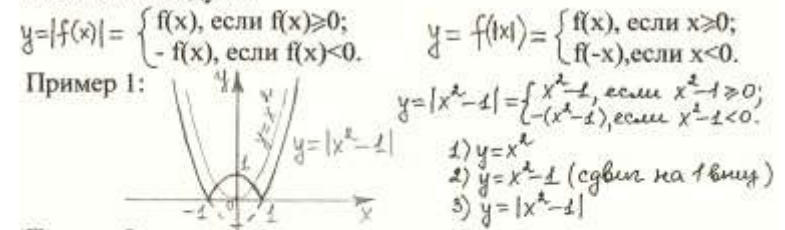 y=|f(x)|= { f(x), если f(x)⩾0;
- f(x), если f(x)<0.
y= f(|x|)= { f(x), если x⩾0;
f(-x),если x<0.
Пример 1:
y
y=x²
y=|x²-1|
1
-1
0
1
x
y=|x²-1|= { x²-1, если x²-1⩾0;
-(x²-1), если x²-1<0.
1) y=x²
2) y=x²-1 (сдвиг на 1 вниз)
3) y=|x²-1|